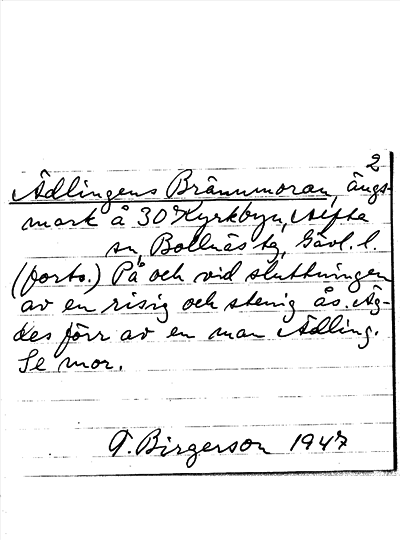 2
Ädlingens Brännmoran, ängs-
mark å 30 Kyrkbyn, Alfta
sn, Bollnäs tg, Gävl. l.
(forts.) På och vid sluttningen
av en risig och stenig ås. Äg-
des förr av en man Ädling.
Se mor.
T. Birgerson 1947